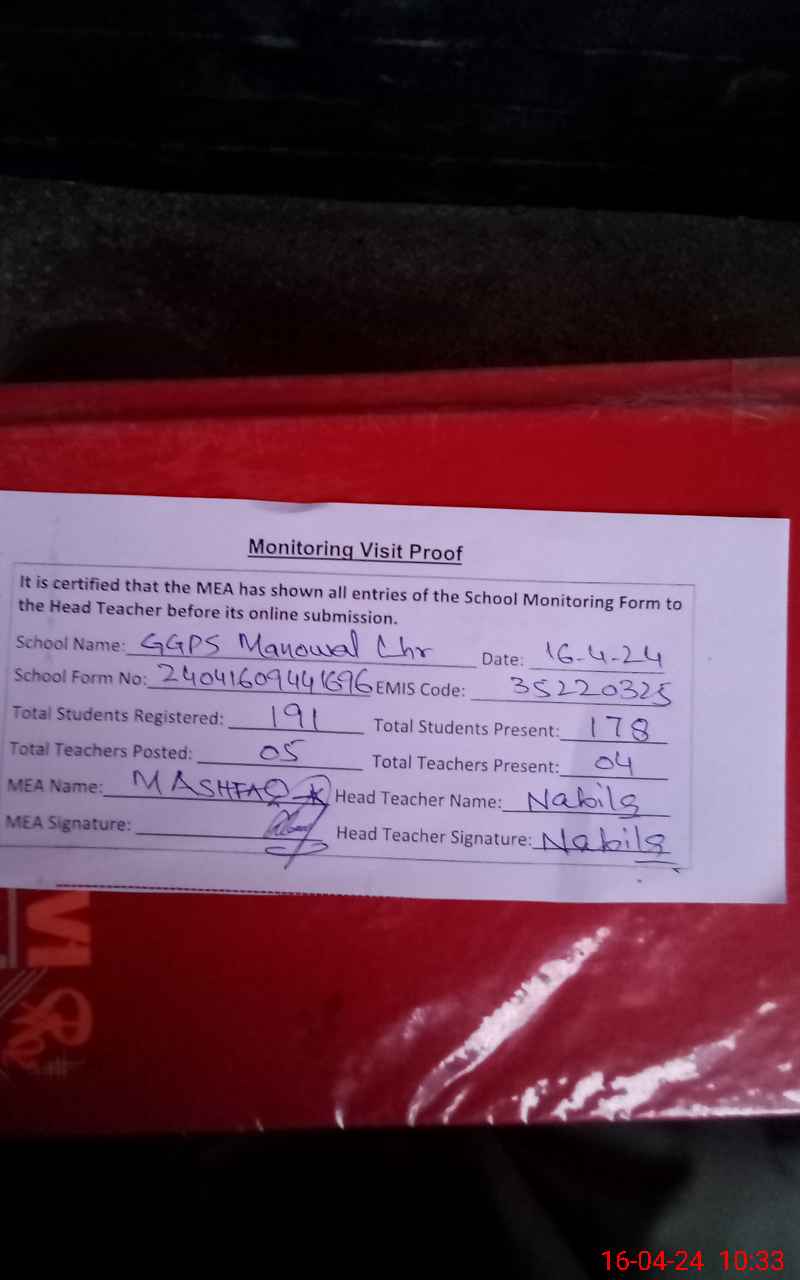 Monitoring Visit Proof
It is certified that the MEA has shown all entries of the School Monitoring Form to
the Head Teacher before its online submission.
School Name: GGPS Manowal Chr Date: 16-4-24
School Form No: 24041609441696 EMIS Code: 35220325
Total Students Registered: 191 Total Students Present: 178
Total Teachers Posted: 05 Total Teachers Present: 04
MEA Name: MASHFAQ Head Teacher Name: Nabila
MEA Signature: Head Teacher Signature: Nabila
16-04-24 10:33